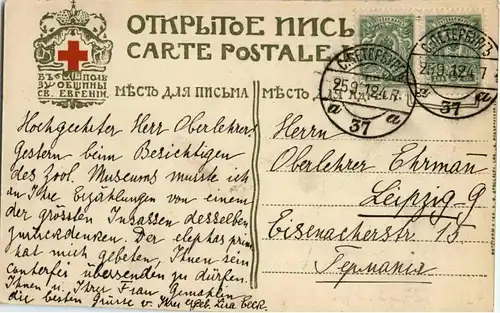 ОТКРЫТОЕ ПИСЬ
CARTE POSTALE
ВЪ ПОЛЬ
ЗУ ОБЩИНЫ
СВ. ЕВГЕНІИ
МѢСТО ДЛЯ ПИСЬМА
МѢСТО
С.ПЕТЕРБУРГЪ
25.9.12 4.7.
37
а а
С.ПЕТЕРБУРГЪ
25.9.12 4.7
37
а а
Hochgeehrter Herr Oberlehrer
Gestern beim Besichtigen
des Zool. Museums musste ich
an Ihre Erzählungen von einem
der grössten Insassen desselben
zurückdenken. Der elephas prim
hat mich gebeten, Ihnen sein
conterfei übersenden zu dürfen.
Ihnen u. Ihrer Frau Gemahlin
die besten Grüsse v. Ihrer ergeb. Lisa Beck
Herrn
Oberlehrer Ehrman
Leipzig-G
Eisenacherstr 15
Германія